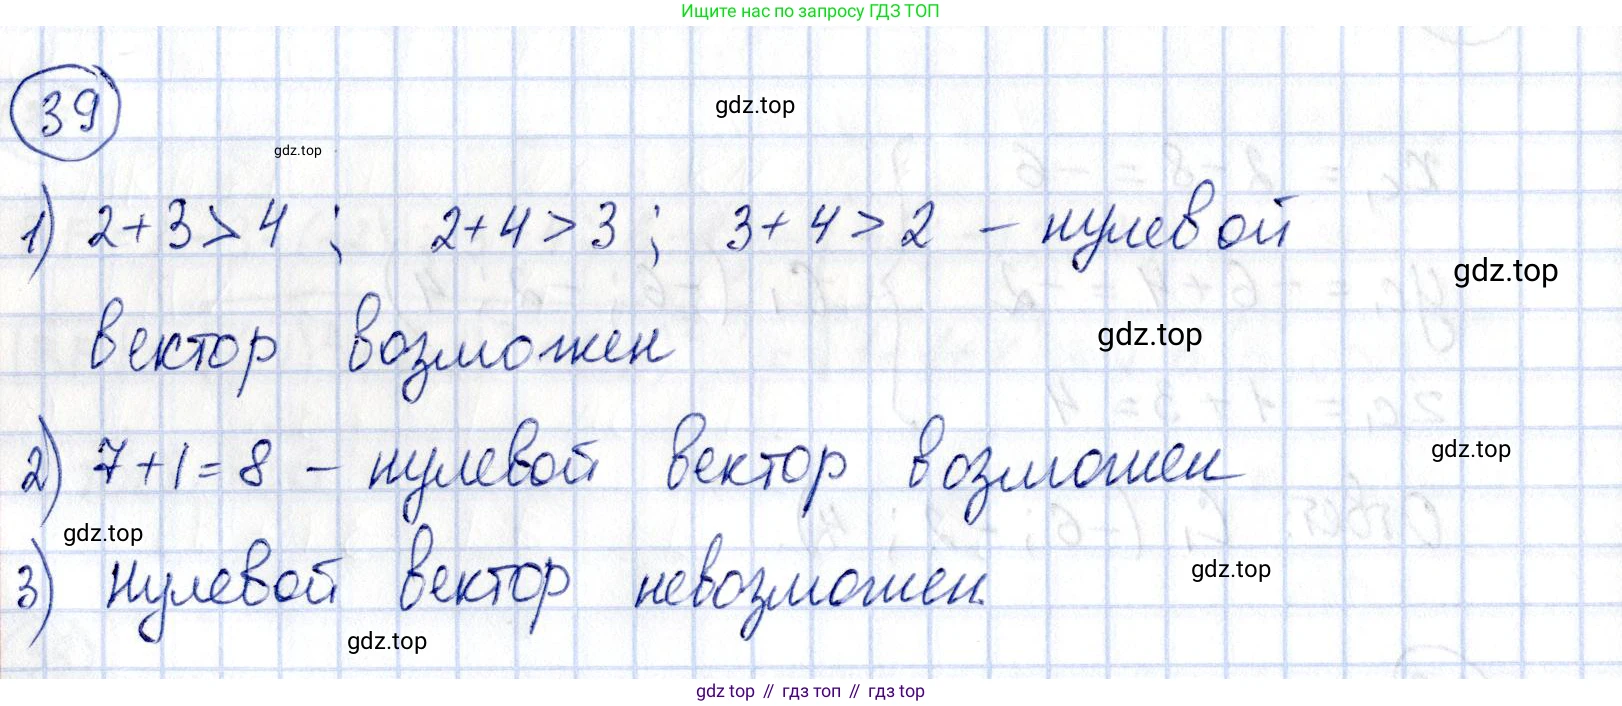 Ищите нас по запросу ГДЗ ТОП
39
gdz.top
gdz.top
1) 2+3>4 ; 2+4>3 ; 3+4>2 – нулевой
gdz.top
вектор возможен
gdz.top
2) 7+1=8 – нулевой вектор возможен
gdz.top
gdz.top
3) нулевой вектор невозможен.
gdz.top
gdz.top
gdz.top // гдз топ // гдз top